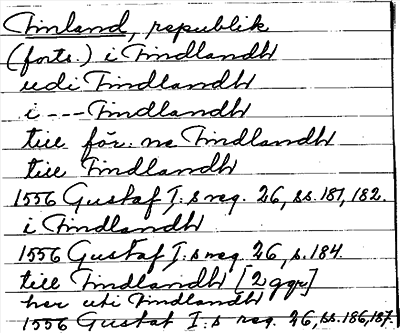 Finland, republik
(forts.) i Findlandh
udi Findlandh
i --- Findlandh
till för. ne Findlandh
till Findlandh
1556 Gustaf I:s reg. 26, ss. 181, 182.
i Findlandh
1556 Gustaf I:s reg. 26, s. 184.
till Findlandh [2 ggr]
her uti Findlandh
1556 Gustaf I:s reg. 26, ss. 186, 187.